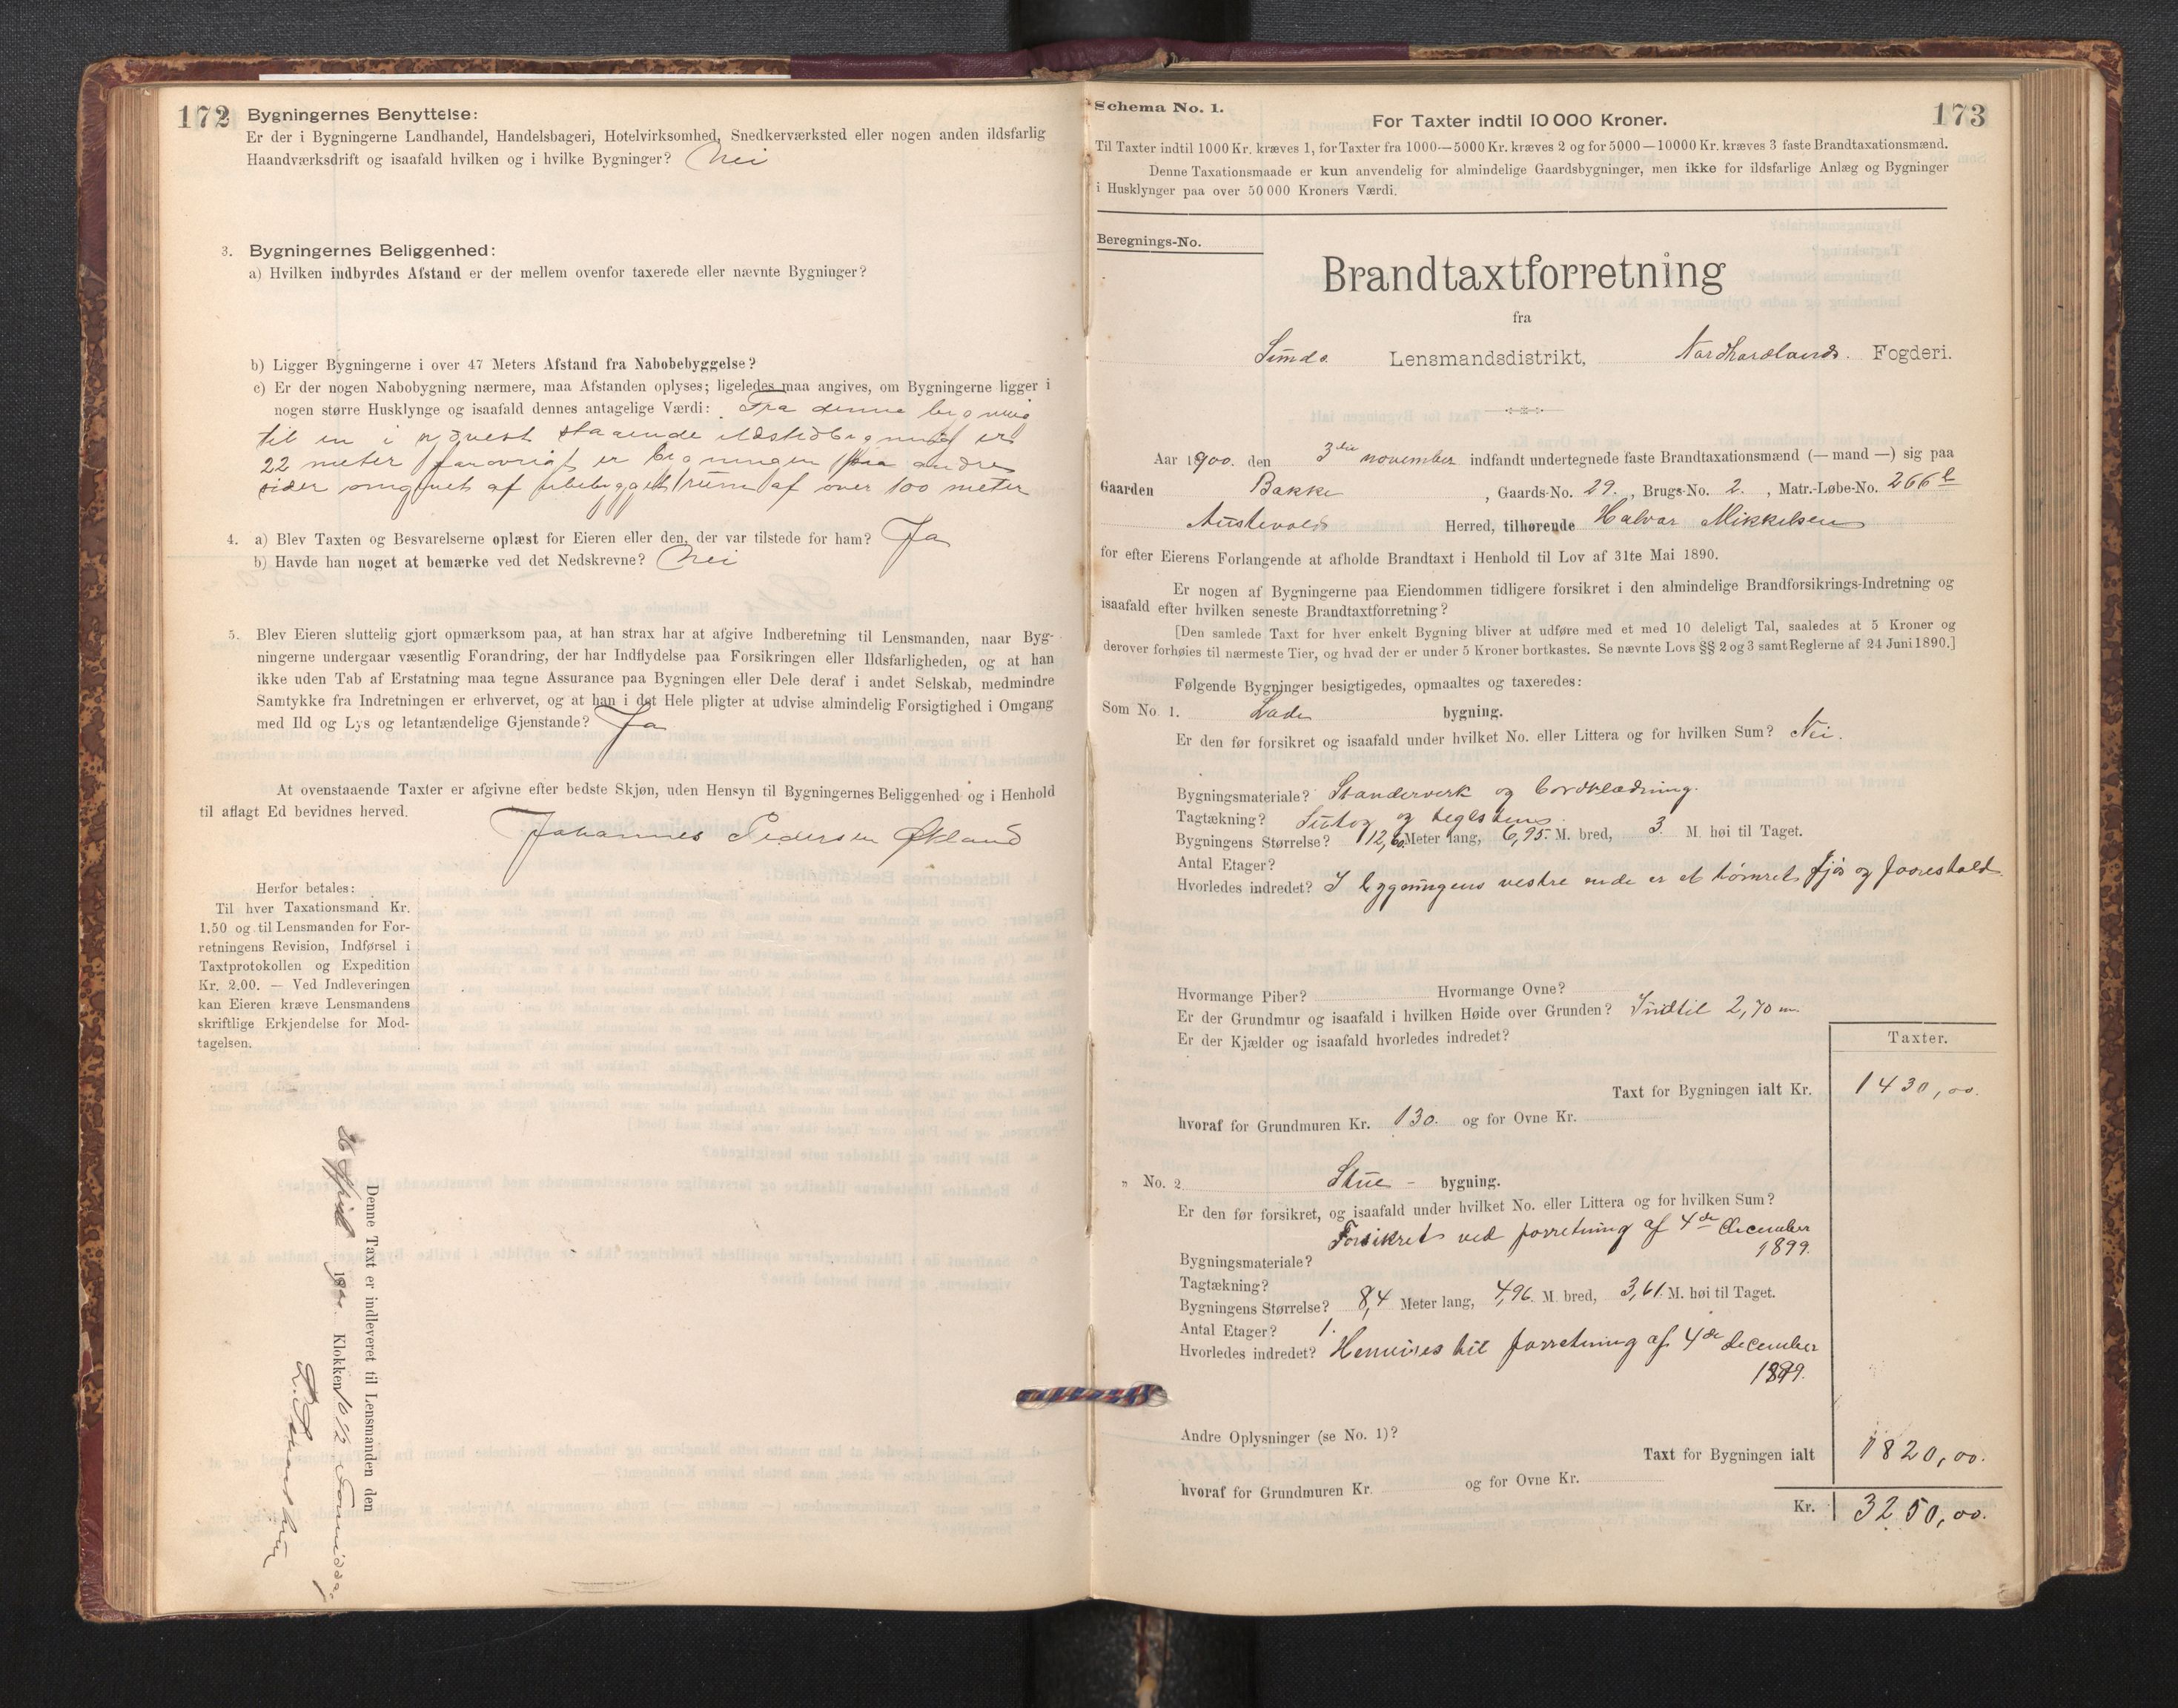 172
Bygningernes Benyttelse:
Er der i Bygningerne Landhandel, Handelsbageri, Hotelvirksomhed, Snedkerværksted eller nogen anden ildsfarlig
Haandværksdrift og isaafald hvilken og i hvilke Bygninger? Nei
3. Bygningernes Beliggenhed:
a) Hvilken indbyrdes Afstand er der mellem ovenfor taxerede eller nævnte Bygninger?
b) Ligger Bygningerne i over 47 Meters Afstand fra Nabobebyggelse?
c) Er der nogen Nabobygning nærmere, maa Afstanden oplyses; ligeledes maa angives, om Bygningerne ligger i
nogen større Husklynge og isaafald dennes antagelige Værdi: Fra denne bygning
til en i nordvest staaende ildstedbygning er
22 meter forøvrigt er bygningen paa andre
sider omgivet af ubebygget rum af over 100 meter
4. a) Blev Taxten og Besvarelserne oplæst for Eieren eller den, der var tilstede for ham? Ja
b) Havde han noget at bemærke ved det Nedskrevne? Nei
5. Blev Eieren sluttelig gjort opmærksom paa, at han strax har at afgive Indberetning til Lensmanden, naar Byg-
ningerne undergaar væsentlig Forandring, der har Indflydelse paa Forsikringen eller Ildsfarligheden, og at han
ikke uden Tab af Erstatning maa tegne Assurance paa Bygningen eller Dele deraf i andet Selskab, medmindre
Samtykke fra Indretningen er erhvervet, og at han i det Hele pligter at udvise almindelig Forsigtighed i Omgang
med Ild og Lys og letantændelige Gjenstande? Ja
At ovenstaaende Taxter er afgivne efter bedste Skjøn, uden Hensyn til Bygningernes Beliggenhed og i Henhold
til aflagt Ed bevidnes herved.
Johannes Pedersen Økland
Herfor betales:
Til hver Taxationsmand Kr.
1.50 og til Lensmanden for For-
retningens Revision, Indførsel i
Taxtprotokollen og Expedition
Kr. 2.00. — Ved Indleveringen
kan Eieren kræve Lensmandens
skriftlige Erkjendelse for Mod-
tagelsen.
Denne Taxt er indleveret til Lensmanden den
26 April 1900. Klokken 10 1/2 Formiddag
Schema No. 1.
173
For Taxter indtil 10 000 Kroner.
Til Taxter indtil 1000 Kr. kræves 1, for Taxter fra 1000—5000 Kr. kræves 2 og for 5000—10000 Kr. kræves 3 faste Brandtaxationsmænd.
Denne Taxationsmaade er kun anvendelig for almindelige Gaardsbygninger, men ikke for ildsfarlige Anlæg og Bygninger
i Husklynger paa over 50 000 Kroners Værdi.
Beregnings-No.
Brandtaxtforretning
fra
Sunds Lensmandsdistrikt, Nordhordlands Fogderi.
Aar 1900. den 3die november indfandt undertegnede faste Brandtaxationsmænd (— mand —) sig paa
Gaarden Bakke, Gaards-No. 29., Brugs-No. 2., Matr.-Løbe-No. 266 b
Austevolds Herred, tilhørende Halvor Mikkelsen
for efter Eierens Forlangende at afholde Brandtaxt i Henhold til Lov af 31te Mai 1890.
Er nogen af Bygningerne paa Eiendommen tidligere forsikret i den almindelige Brandforsikrings-Indretning og
isaafald efter hvilken seneste Brandtaxtforretning?
[Den samlede Taxt for hver enkelt Bygning bliver at udføre med et med 10 deleligt Tal, saaledes at 5 Kroner og
derover forhøies til nærmeste Tier, og hvad der er under 5 Kroner bortkastes. Se nævnte Lovs §§ 2 og 3 samt Reglerne af 24 Juni 1890.]
Følgende Bygninger besigtigedes, opmaaltes og taxeredes:
Som No. 1. Lade bygning.
Er den før forsikret og isaafald under hvilket No. eller Littera og for hvilken Sum? Nei.
Bygningsmateriale? Standerverk og bordklædning.
Tagtækning? og teglstens
Bygningens Størrelse? 12,60 Meter lang, 6,95 M. bred, 3 M. høi til Taget.
Antal Etager?
Hvorledes indredet? I bygningens vestre ende er et tømret fjøs og faarestald.
Hvormange Piber? Hvormange Ovne?
Er der Grundmur og isaafald i hvilken Høide over Grunden? Indtil 2,70 m.
Er der Kjælder og isaafald hvorledes indredet?
Taxter.
Taxt for Bygningen ialt Kr. 1430,00.
hvoraf for Grundmuren Kr. 130. og for Ovne Kr.
„ No. 2 Stue - bygning.
Er den før forsikret, og isaafald under hvilket No. eller Littera og for hvilken Sum?
Forsikret ved forretning af 4de December
1899.
Bygningsmateriale?
Tagtækning?
Bygningens Størrelse? 8,4 Meter lang, 4,96 M. bred, 3,61 M. høi til Taget.
Antal Etager? 1.
Hvorledes indredet? Henvises til forretning af 4de december
1899.
Andre Oplysninger (se No. 1)?
Taxt for Bygningen ialt 1820,00.
hvoraf for Grundmuren Kr. og for Ovne Kr.
Kr. 3250,00.